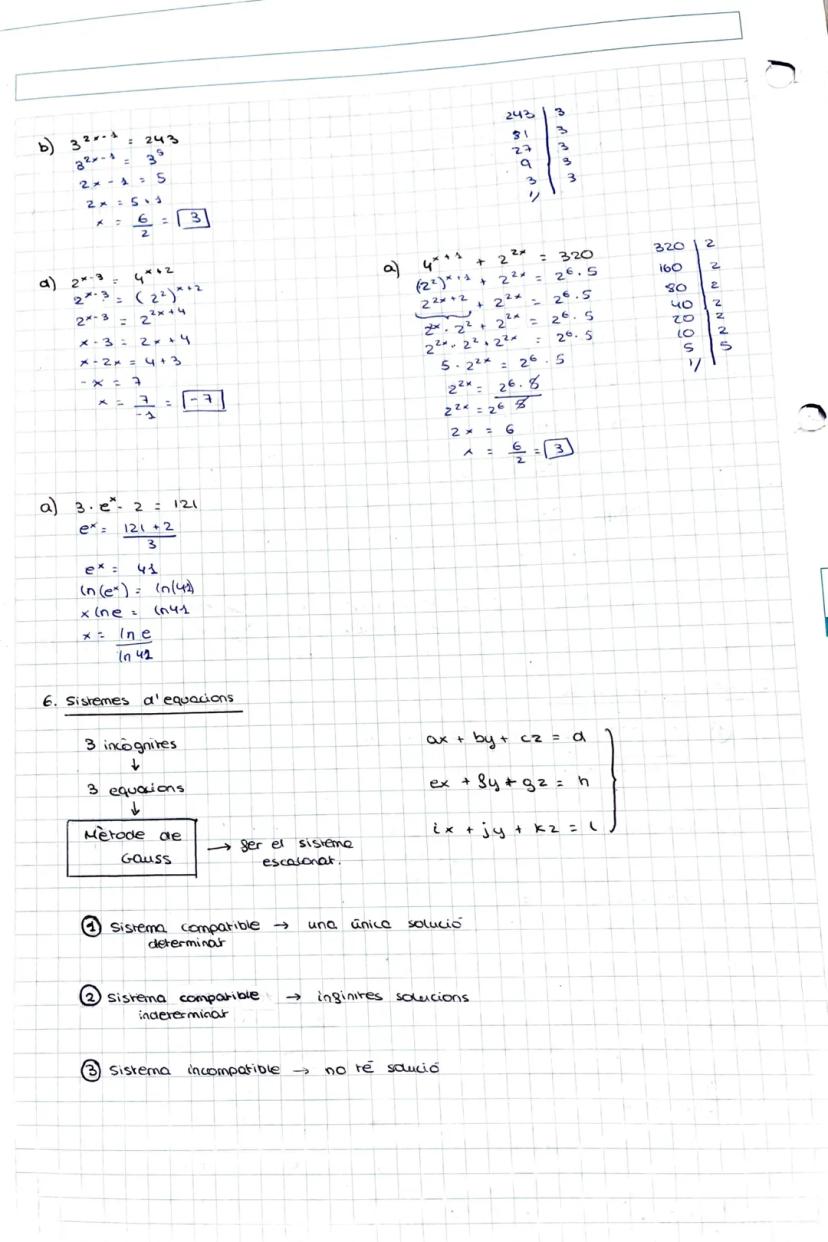 b) 3^2x-1 = 243
3^2x-1 = 3^5
2x - 1 = 5
2x = 5+1
x = 6/2 = 3
243 | 3
81 | 3
27 | 3
9 | 3
3 | 3
1/
d) 2^x-3 = 4^x+2
2^x-3 = (2^2)^x+2
2^x-3 = 2^2x+4
x - 3 = 2x + 4
x - 2x = 4 + 3
-x = 7
x = 7/-1 = -7
a) 4^x+1 + 2^2x = 320
(2^2)^x+1 + 2^2x = 2^6 · 5
2^2x+2 + 2^2x = 2^6 · 5
2^x · 2^2 + 2^2x = 2^6 · 5
2^2x · 2^2 + 2^2x = 2^6 · 5
5 · 2^2x = 2^6 · 5
2^2x = 2^6 · 5/5
2^2x = 2^6
2x = 6
x = 6/2 = 3
320 | 2
160 | 2
80 | 2
40 | 2
20 | 2
10 | 2
5 | 5
1/
a) 3 · e^x - 2 = 121
e^x = 121 + 2/3
e^x = 41
ln(e^x) = ln(41)
x ln e = ln 41
x = ln e/ln 41
6. Sistemes d'equacions
3 incògnites
↓
3 equacions
↓
Mètode de
Gauss
→ fer el sistema
escalonat.
ax + by + cz = d
ex + fy + gz = h
ix + jy + kz = l
① Sistema compatible → una única solució
determinat
② Sistema compatible → infinites solucions
indeterminat
③ Sistema incompatible → no té solució